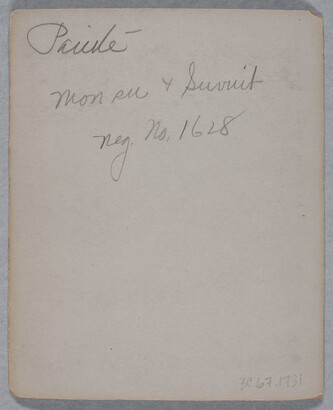 Paiute
Mon su & Suvuit
neg. No. 1628
P.67.1731